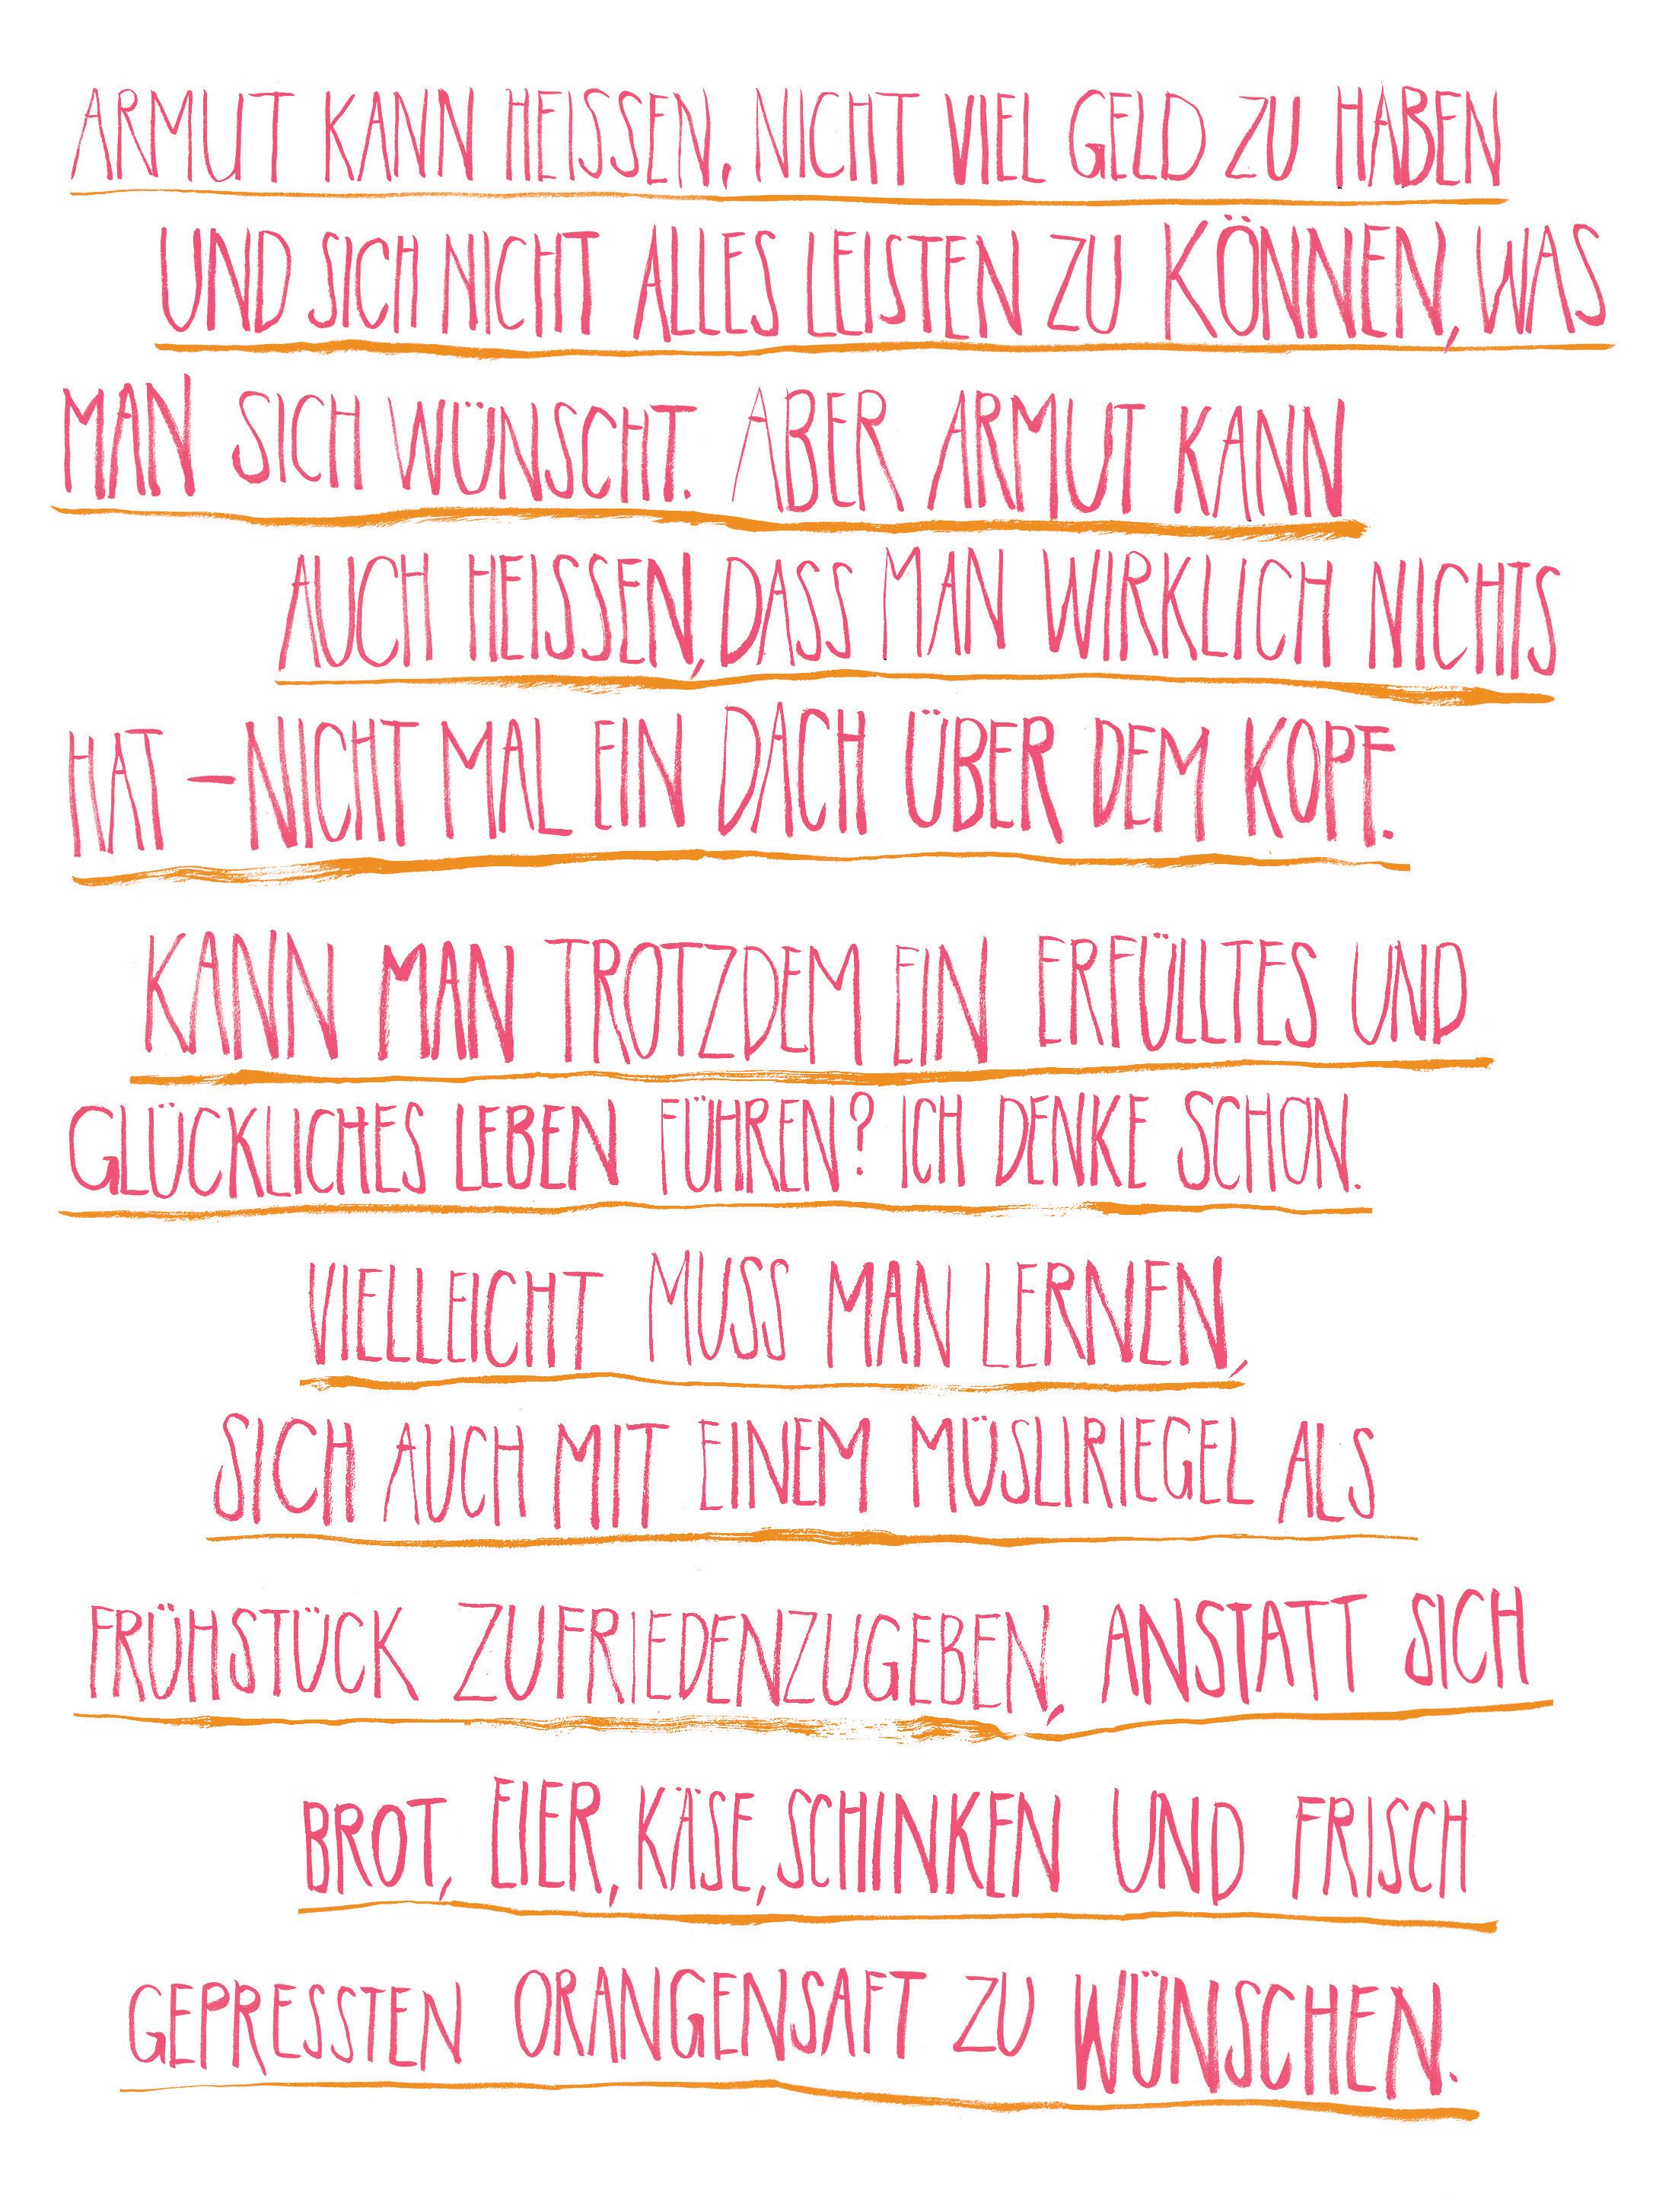 ARMUT KANN HEISSEN, NICHT VIEL GELD ZU HABEN
UND SICH NICHT ALLES LEISTEN ZU KÖNNEN, WAS
MAN SICH WÜNSCHT. ABER ARMUT KANN
AUCH HEISSEN, DASS MAN WIRKLICH NICHTS
HAT – NICHT MAL EIN DACH ÜBER DEM KOPF.
KANN MAN TROTZDEM EIN ERFÜLLTES UND
GLÜCKLICHES LEBEN FÜHREN? ICH DENKE SCHON.
VIELLEICHT MUSS MAN LERNEN,
SICH AUCH MIT EINEM MÜSLIRIEGEL ALS
FRÜHSTÜCK ZUFRIEDENZUGEBEN, ANSTATT SICH
BROT, EIER, KÄSE, SCHINKEN UND FRISCH
GEPRESSTEN ORANGENSAFT ZU WÜNSCHEN.